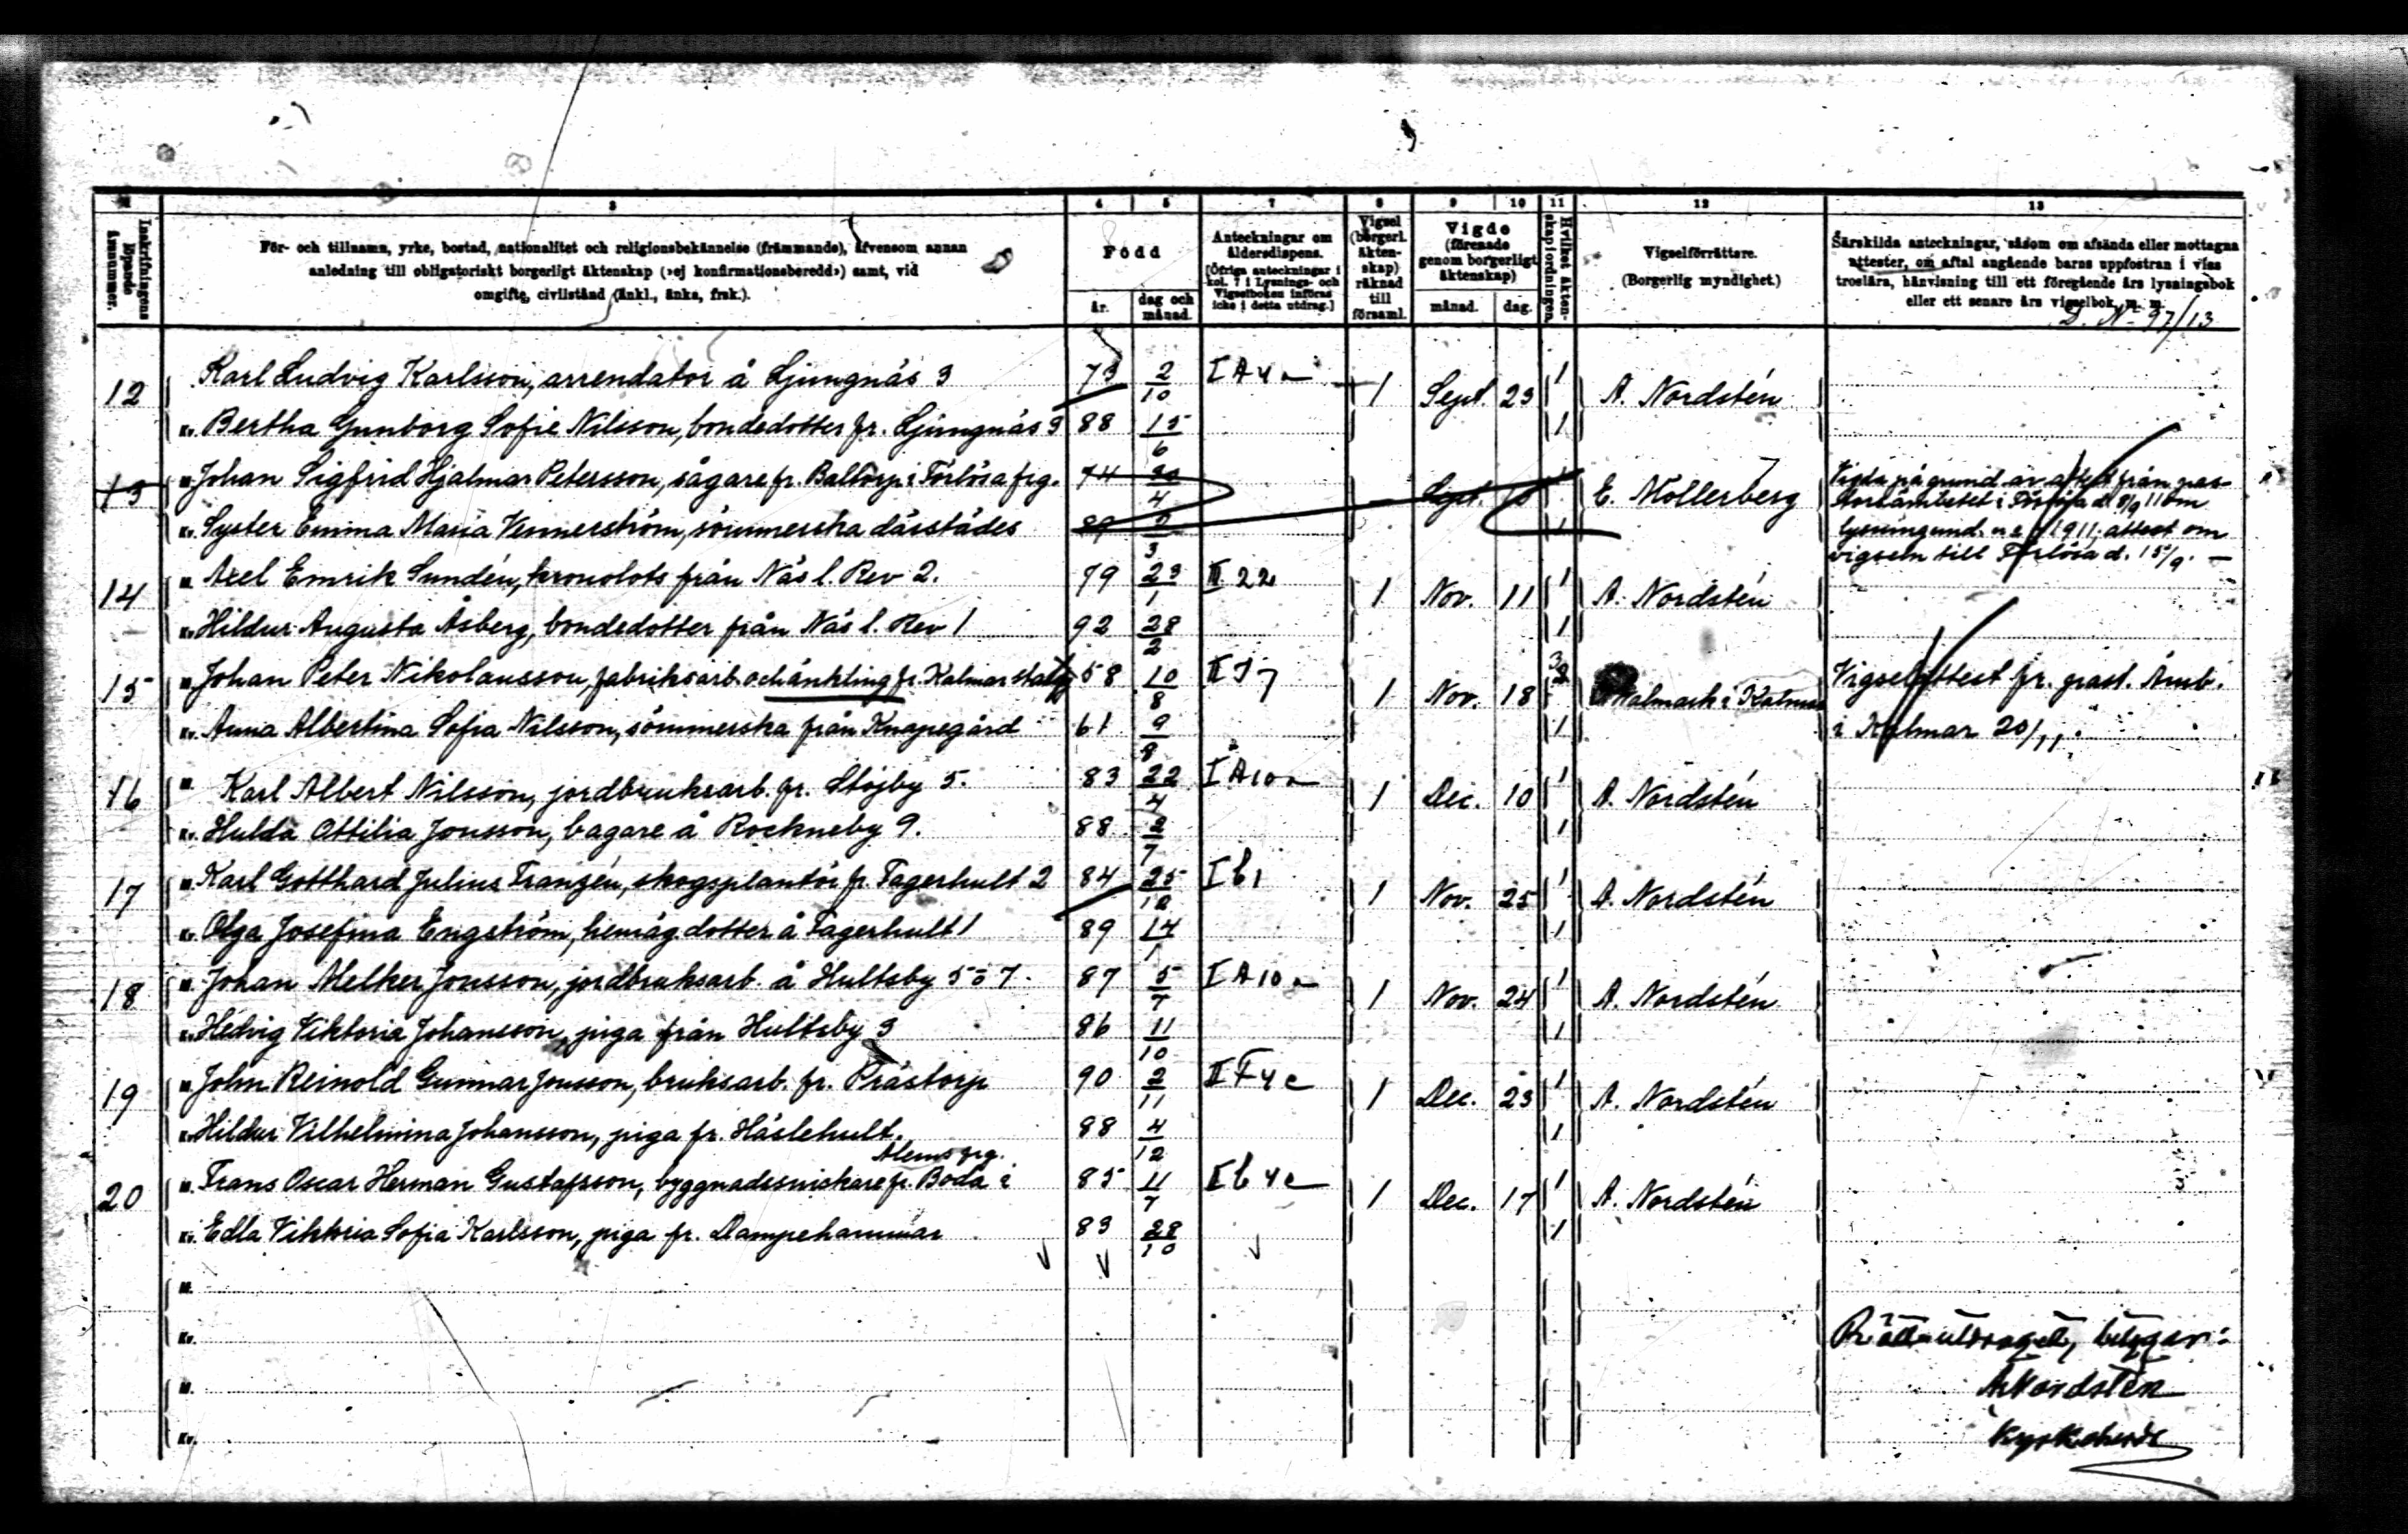 3 4 5 7 8 9 10 11 12 13
Inskrifningens löpande årsnummer.
För- och tillnamn, yrke, bostad, nationalitet och religionsbekännelse (främmande), äfvensom annan
anledning till obligatoriskt borgerligt äktenskap (»ej konfirmationsberedd») samt, vid
omgifte, civilstånd (änkl., änka, frsk.).
Född
år.
dag och månad.
Anteckningar om åldersdispens.
[Öfriga anteckningar i kol. 7 i Lysnings- och Vigselboken införas icke i detta utdrag.]
Vigsel (borgerl. äktenskap) räknad till församl.
Vigde (förenade genom borgerligt äktenskap)
månad. dag.
Hvilket äktenskap i ordningen.
Vigselförrättare.
(Borgerlig myndighet.)
Särskilda anteckningar, såsom om afsända eller mottagna
attester, om aftal angående barns uppfostran i viss
troslära, hänvisning till ett föregående års lysningsbok
eller ett senare års vigselbok, m. m.
D. No 97/13
12 Karl Ludvig Karlsson, arrendator å Ljungnäs 3 73 2/10 I A 4 a 1 Sept. 23 1 A. Nordstén
Kv. Bertha Gunborg Sofie Nilsson, bondedotter fr. Ljungnäs 3 88 15/6 1
13 M. Johan Sigfrid Hjalmar Petersson, sågare fr. Baltorp i Förlösa frg. 74 4 Sept. E. Mollerberg Vigda på grund av attest från pas-
storsämbetet i Förlösa d. 8/9 11 om
Kv. Syster Emma Maria Vennerström, sömmerska därstädes 89 3 1 lysning und. 1911; attest om
vigseln till Förlösa d. 15/9. —
14 M. Axel Emrik Sundén, kronolots från Näs l. Rev 2. 79 23/1 II 22 1 Nov. 11 1 A. Nordstén
Kv. Hildur Augusta Åsberg, bondedotter från Näs l. Rev 1 92 28/2 1
15 M. Johan Peter Nikolausson, fabriksarb. och änkling fr. Kalmar stads 58 10/8 1 Nov. 18 Kalmar Vigselattest fr. past. Ämb.
Kv. Anna Albertina Sofia Nilsson, sömmerska från Knapegård 61 9/8 1 i Kalmar 20/11.
16 M. Karl Albert Nilsson, jordbruksarb. fr. Stojby 5. 83 22/4 I A 10 a 1 Dec. 10 1 A. Nordstén
Kv. Hulda Ottilia Jonsson, bagare å Rockneby 9. 88 2/7 1
17 M. Karl Gotthard Julius Franzén, skogsplantör fr. Fagerhult 2 84 25/12 I b 1 1 Nov. 25 1 A. Nordstén
Kv. Olga Josefina Engström, hemäg.dotter å Fagerhult 1 89 14/1 1
18 M. Johan Melker Jonsson, jordbruksarb. å Hultsby 5 o 7. 87 5/7 I A 10 a 1 Nov. 24 1 A. Nordstén
Kv. Hedvig Viktoria Johansson, piga från Hultsby 3 86 11/10 1
19 M. John Reinold Gunnar Jonsson, bruksarb. fr. Prästorp 90 2/11 II F 4 c 1 Dec. 23 1 A. Nordstén
Kv. Hildur Vilhelmina Johansson, piga fr. Häslehult. 88 4/12 1
Ålems frg.
20 M. Frans Oscar Herman Gustafsson, byggnadssnickare fr. Boda i 85 11/7 I b 4 c 1 Dec. 17 1 A. Nordstén
Kv. Edla Viktoria Sofia Karlsson, piga fr. Dampehammar 83 28/10 1
M.
Kv. Rätt utdraget, betygar:
M. A Nordstén
Kv. Kyrkoherde